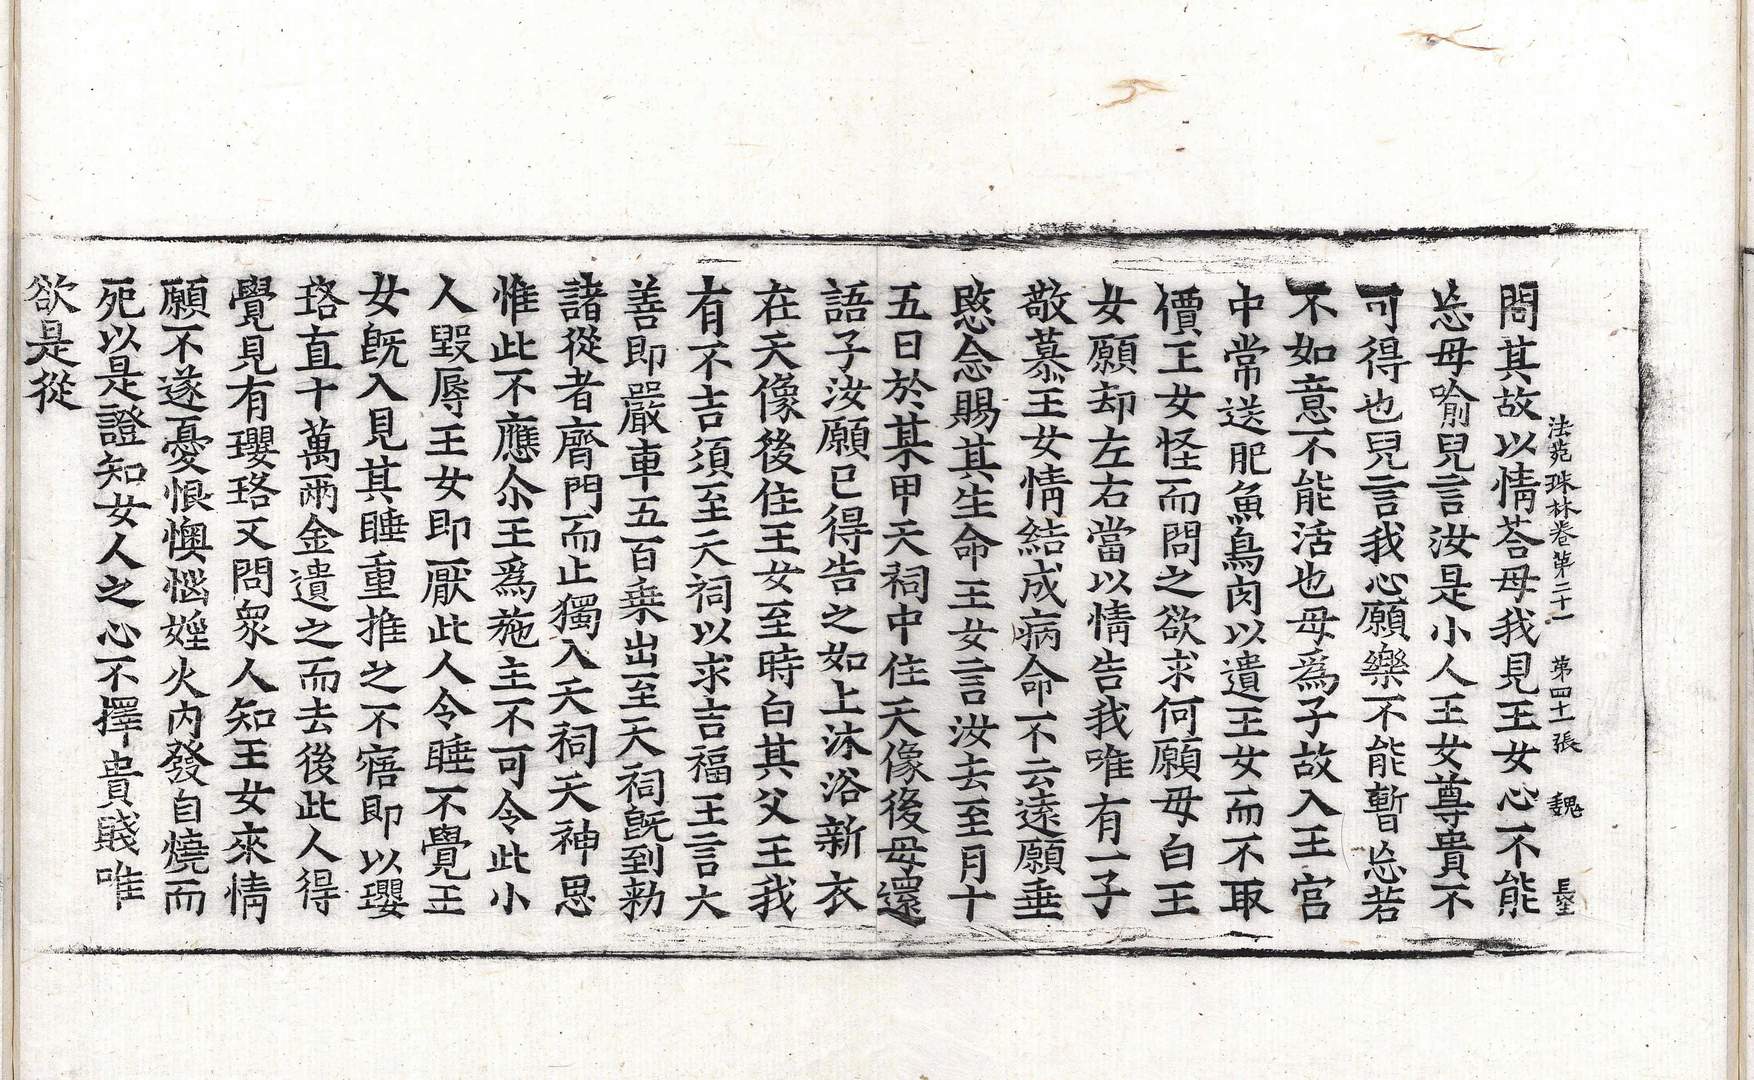 法苑珠林卷第二十一 第四十張 魏 
問其故以情荅母我見王女心不能
忘母喻兒言汝是小人王女尊貴不
可得也兒言我心願樂不能暫忘若
不如意不能活也母爲子故入王宮
中常送肥魚鳥肉以遺王女而不取
價王女怪而問之欲求何願母白王
女願却左右當以情告我唯有一子
敬慕王女情結成病命不云遠願垂
愍念賜其生命王女言汝去至月十
五日於某甲天祠中住天像後母還
語子汝願已得告之如上沐浴新衣
在天像後住王女至時白其父王我
有不吉須至天祠以求吉福王言大
善即嚴車五百乗出至天祠旣到勑
諸從者齊門而止獨入天祠天神思
惟此不應尒王爲施主不可令此小
人毀辱王女即厭此人令睡不覺王
女旣入見其睡重推之不寤即以瓔
珞直十萬兩金遺之而去後此人得
覺見有瓔珞又問衆人知王女來情
願不遂憂恨懊惱婬火內發自燒而
死以是證知女人之心不擇貴賤唯
欲是從